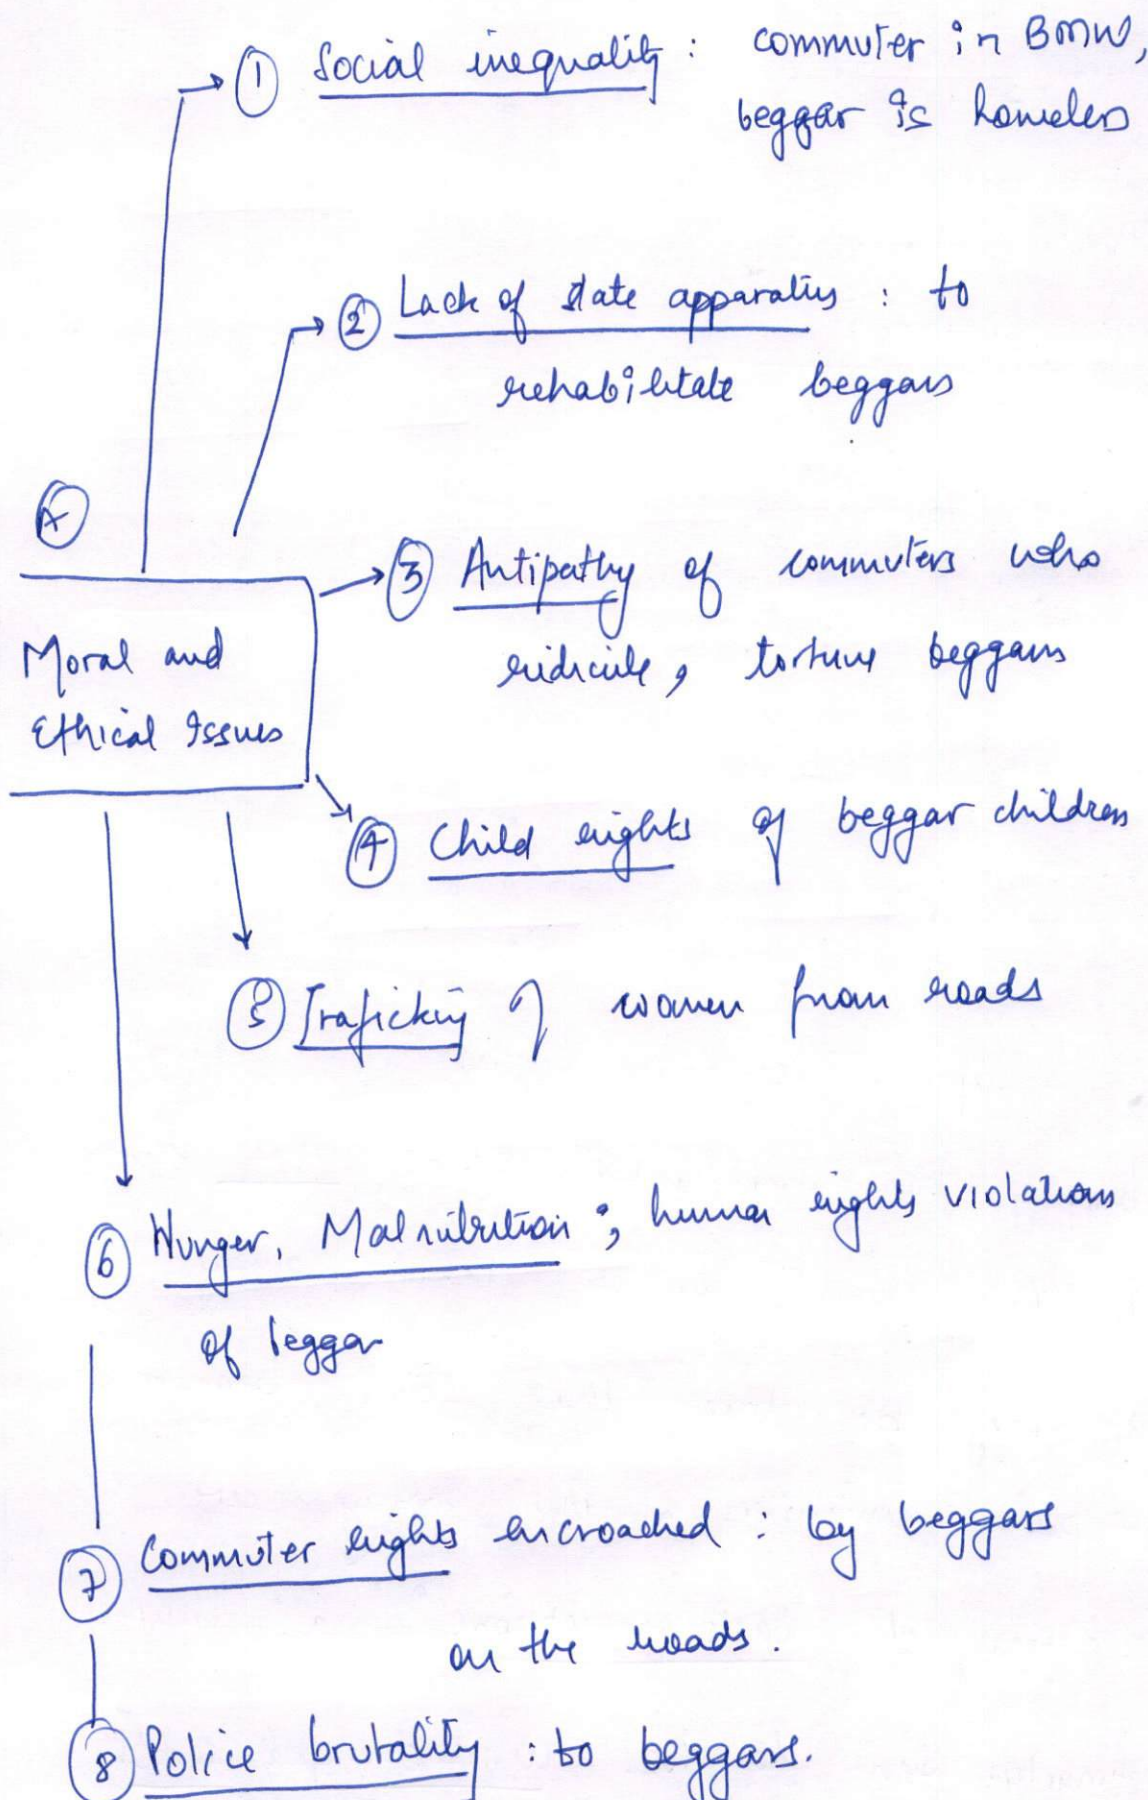 ① Social inequality : commuter in BMW,
beggar is homeless
② Lack of state apparatus : to
rehabilitate beggars
A
③ Antipathy of commuters who
ridicule, torture beggars
Moral and
Ethical Issues
④ Child rights of beggar children
⑤ Traficking of women from roads
⑥ Hunger, Malnutrition ; human rights violations
of beggar
⑦ Commuter rights encroached : by beggars
on the roads.
⑧ Police brutality : to beggars.